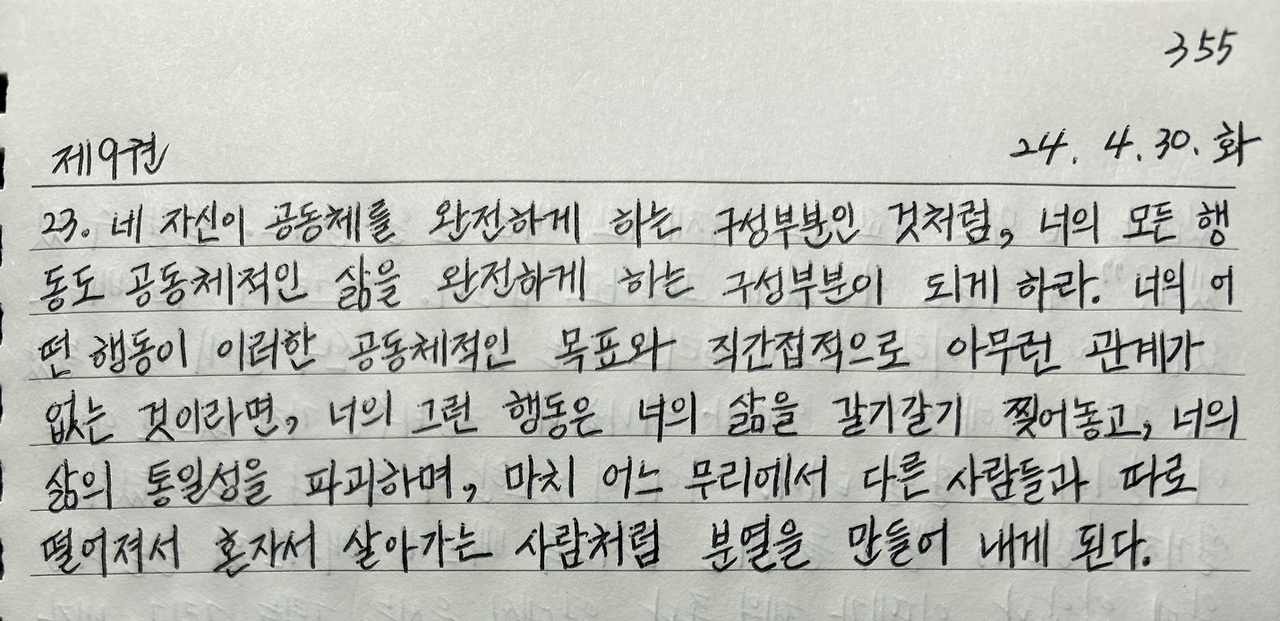 355
제9권 24. 4. 30. 화
23. 네 자신이 공동체를 완전하게 하는 구성부분인 것처럼, 너의 모든 행
동도 공동체적인 삶을 완전하게 하는 구성부분이 되게 하라. 너의 어
떤 행동이 이러한 공동체적인 목표와 직간접적으로 아무런 관계가
없는 것이라면, 너의 그런 행동은 너의 삶을 갈기갈기 찢어놓고, 너의
삶의 통일성을 파괴하며, 마치 어느 무리에서 다른 사람들과 따로
떨어져서 혼자서 살아가는 사람처럼 분열을 만들어 내게 된다.